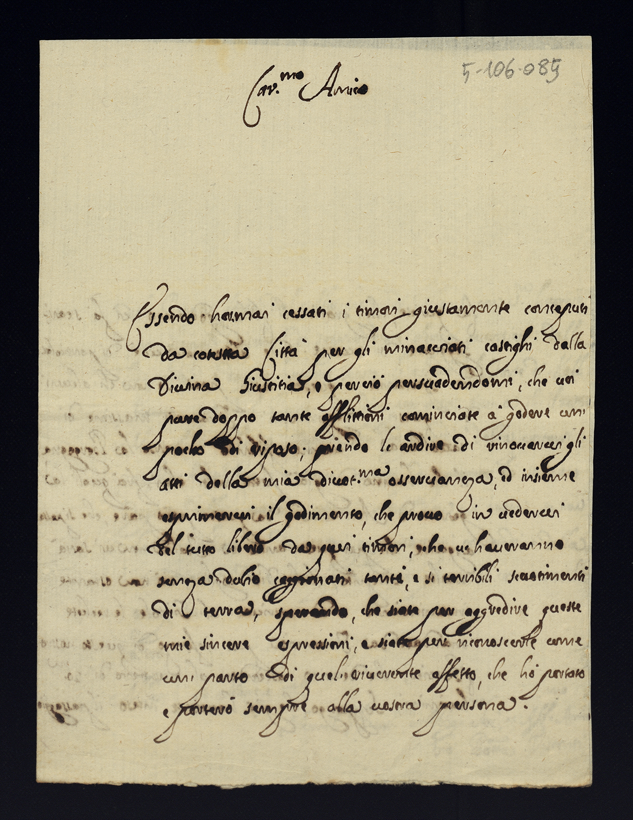 5-106-085
Car.mo Amico
Essendo hormai cessati i timori giustamente conceputi
da cotesta Città per gli minacciati castighi dalla
Divina Giustitia, e perciò persuadendomi, che voi
pure doppo tante afflittioni cominciate à godere un
pocho di riposo; prendo le ardire di rinovarvi gli
atti della mia divot.ma osservanza, ed insieme
esprimervi il godimento, che provo in vedervi
del tutto libero da quei timori, che v'haveranno
senza dubio cagionati tanti, e si terribili scuotimenti
di terra, sperando, che siate per aggredire queste
mie sincere espressioni, e siate per riconoscerle come
un parto di quel riverente affetto, che hò portato
e porterò sempre alla vostra persona.